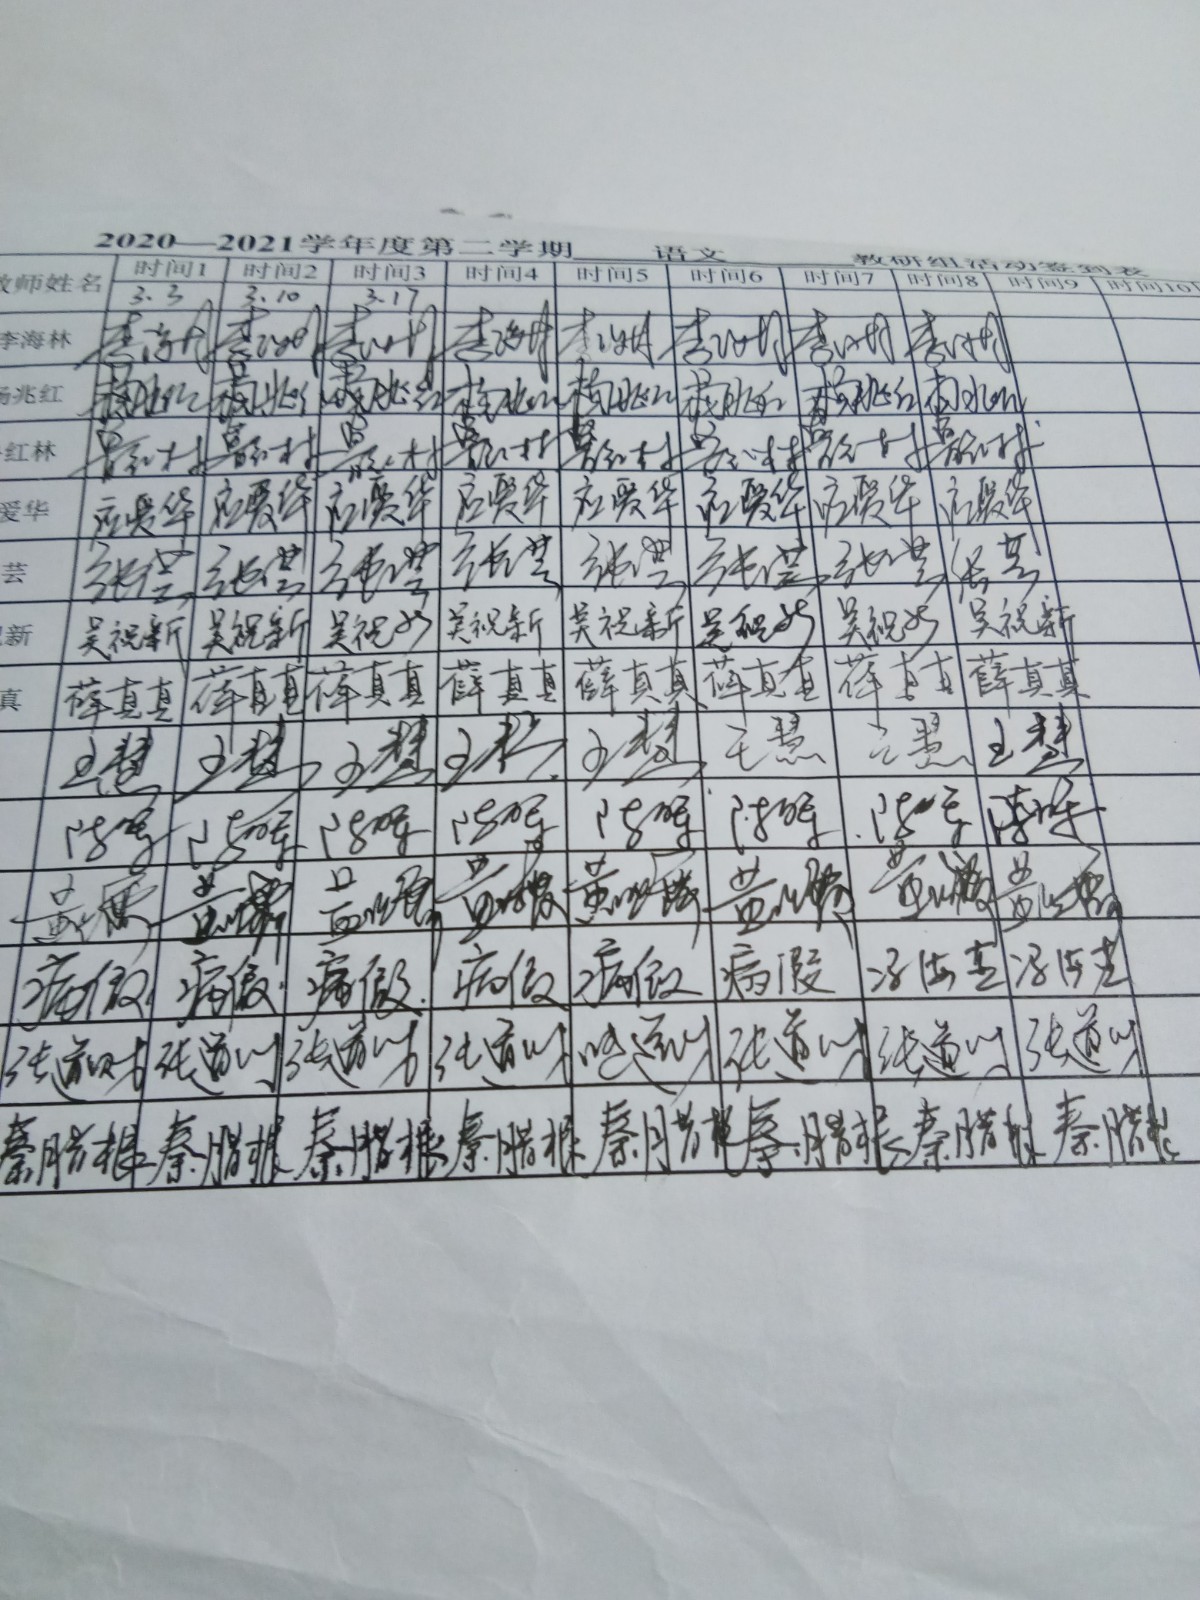 2020—2021学年度第二学期 语文 教研组活动签到表
教师姓名 时间1 时间2 时间3 时间4 时间5 时间6 时间7 时间8 时间9 时间10
3.3 3.10 3.17
李海林 李海林 李海林 李海林 李海林 李海林 李海林 李海林 李海林
杨兆红 杨兆红 杨兆红 杨兆红 杨兆红 杨兆红 杨兆红 杨兆红 杨兆红
红林
爱华 应爱华 应爱华 应爱华 应爱华 应爱华 应爱华 应爱华 应爱华
芸 张芸 张芸 张芸 张芸 张芸 张芸 张芸 张芸
新 吴祝新 吴祝新 吴祝新 吴祝新 吴祝新 吴祝新 吴祝新 吴祝新
真 薛真真 薛真真 薛真真 薛真真 薛真真 薛真真 薛真真 薛真真
王慧 王慧 王慧 王慧 王慧 王慧 王慧 王慧
陈晖 陈晖 陈晖 陈晖 陈晖 陈晖 陈晖 陈晖
黄 黄 黄 黄 黄 黄 黄 黄
病假 病假 病假 病假 病假 病假 冯海燕 冯海燕
张道 张道 张道 张道 张道 张道 张道 张道
秦腊根 秦腊根 秦腊根 秦腊根 秦腊根 秦腊根 秦腊根 秦腊根